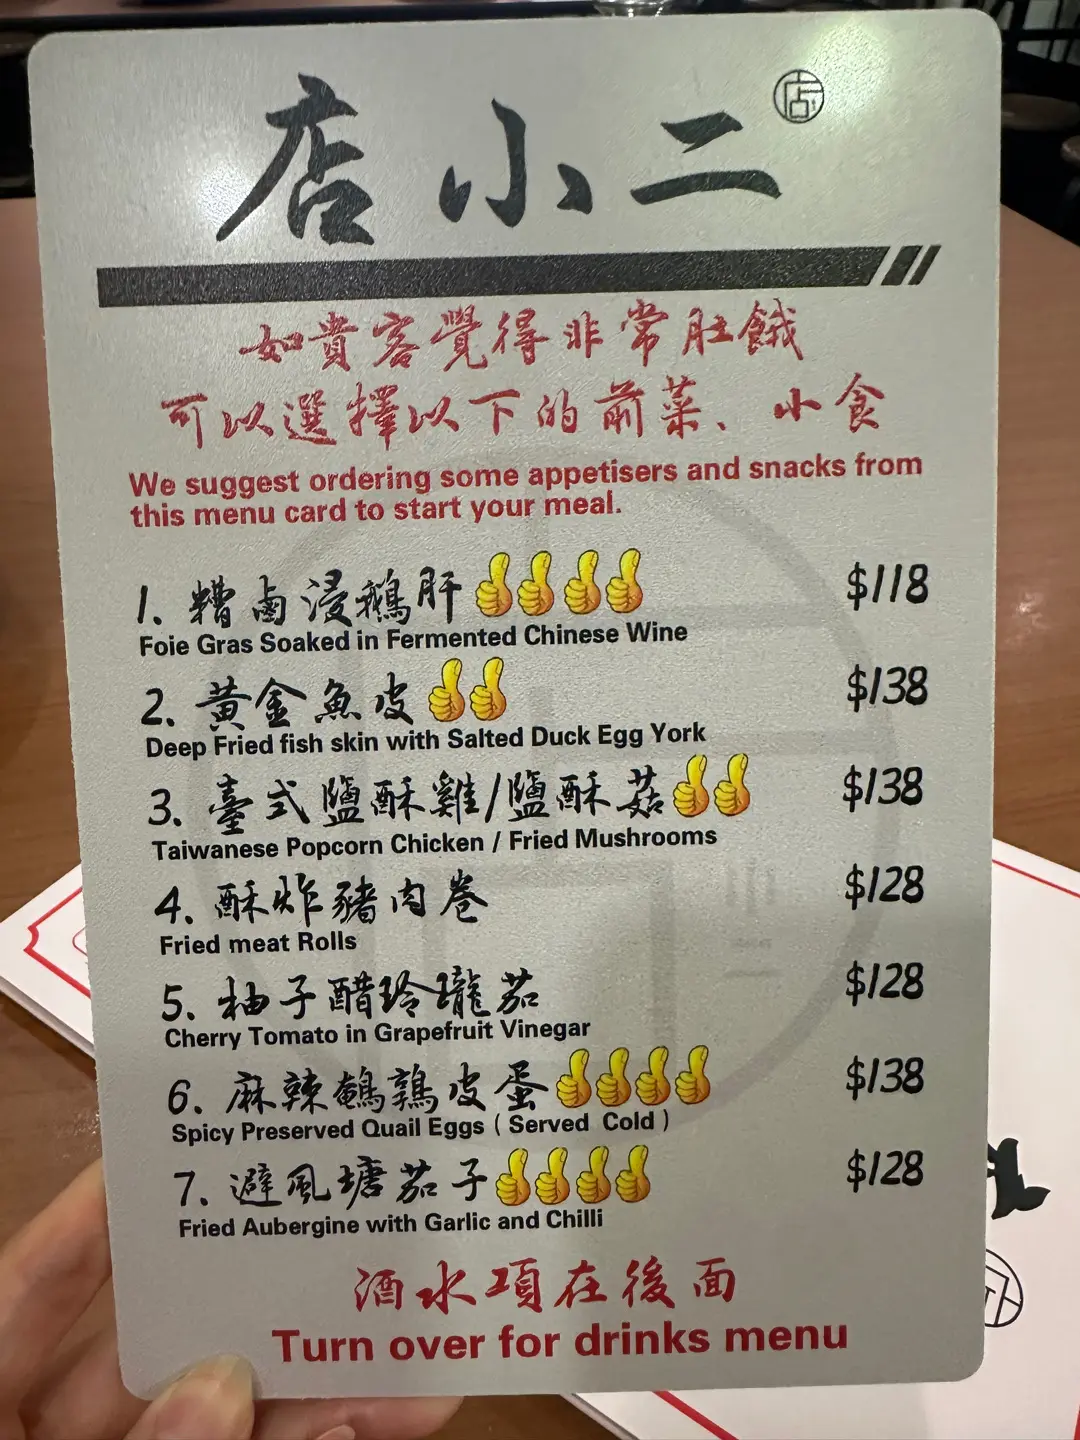 店小二
如貴客覺得非常肚餓
可以選擇以下的前菜、小食
We suggest ordering some appetisers and snacks from
this menu card to start your meal.
1. 糟鹵浸鵝肝 $118
Foie Gras Soaked in Fermented Chinese Wine
2. 黃金魚皮 $138
Deep Fried fish skin with Salted Duck Egg York
3. 臺式鹽酥雞/鹽酥菇 $138
Taiwanese Popcorn Chicken / Fried Mushrooms
4. 酥炸豬肉卷 $128
Fried meat Rolls
5. 柚子醋玲瓏茄 $128
Cherry Tomato in Grapefruit Vinegar
6. 麻辣鵪鶉皮蛋 $138
Spicy Preserved Quail Eggs ( Served Cold )
7. 避風塘茄子 $128
Fried Aubergine with Garlic and Chilli
酒水項在後面
Turn over for drinks menu